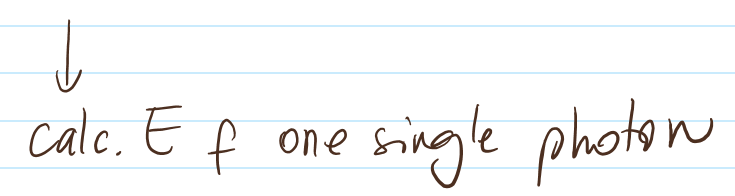 calc. E f one single photon